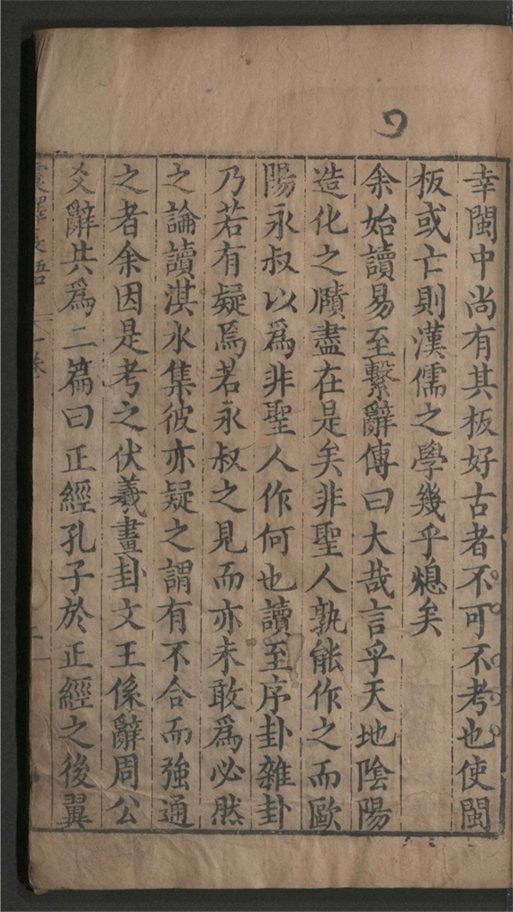 幸閩中尚有其板好古者不可不考也使閩
板或亡則漢儒之學幾乎熄矣
余始讀易至繫辭傳曰大哉言乎天地陰陽
造化之賾盡在是矣非聖人孰能作之而歐
陽永叔以爲非聖人作何也讀至序卦雜卦
乃若有疑焉若永叔之見而亦未敢爲必然
之論讀淇水集彼亦疑之謂有不合而強通
之者余因是考之伏羲畫卦文王係辭周公
爻辭共爲二篇曰正經孔子於正經之後翼